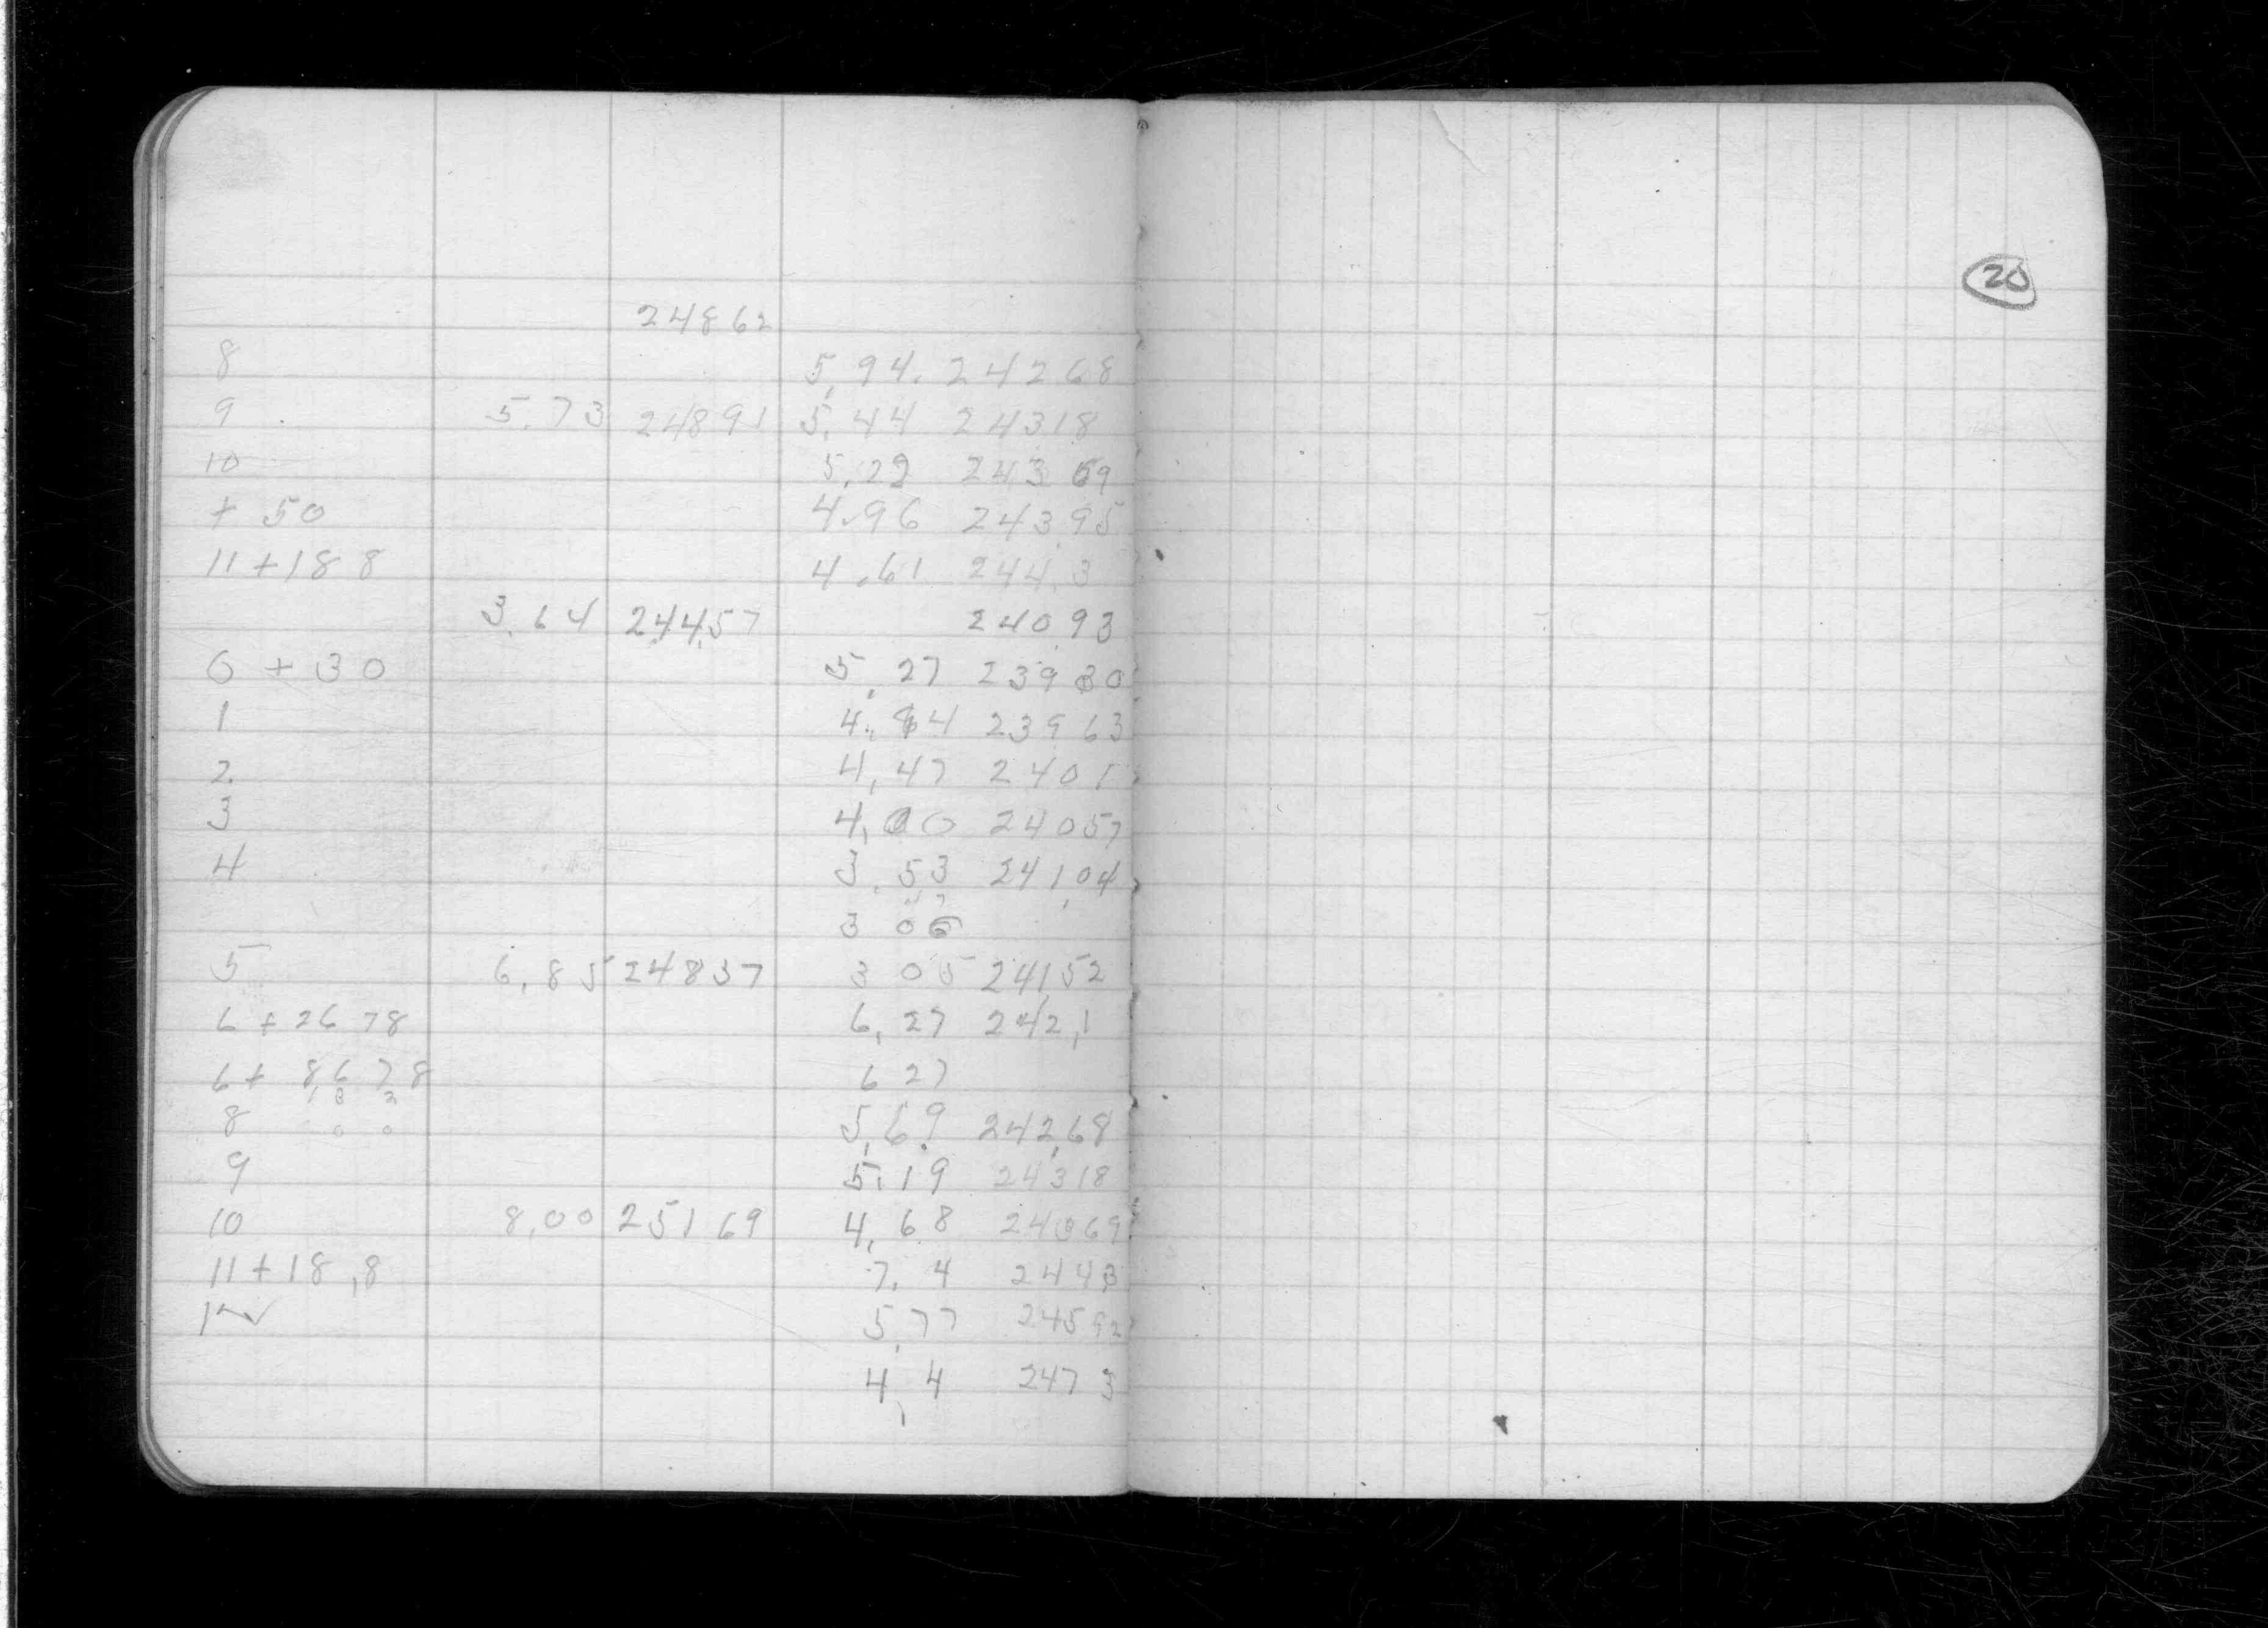 24862
8 5.94. 24268
9 5.73 24891 5.44 24318
10 5.22 24369
+ 50 4.96 24395
11+188 4.61 244.3
3.64 24457 24093
0 + 30 5.27 23930
1 4.84 23963
2 4.47 2401
3 4.00 24057
4 3.53 24104
3 06
5 6.85 24837 3 05 24152
6 + 26 78 6.27 242,1
6 + 86 78 6 27
8 5.69 24268
9 5.19 24318
10 8.00 25169 4.68 24369
11+18,8 7.4 2443
5.77 24592
4.4 2473
20